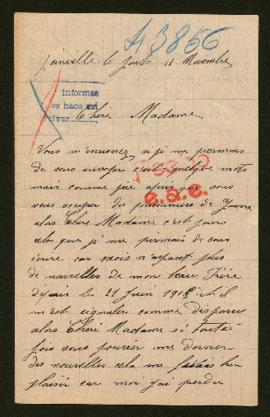 A 3856
Joinville le pont 11 Novembre
informes
se hace su
Chere Madame
Vous m'excuserez si je me permais
de vous envoyer ces quelques mots
mais comme j'ai apris que vous
vous occuper de prisonniers de Guerre
alors Chere Madame c'est pour
cela que je me permais de vous
écrire car voici n'ayant plus
de nouvelles de mon beau Frère
depuis le 21 Juin 1915 et il
m'est signaler comme disparus
alors Chere Madame si toute
fois vous pouvrer me donner
des nouvelles cela me faisais bien
plaisir car moi j'ai perdu
e.a.e.